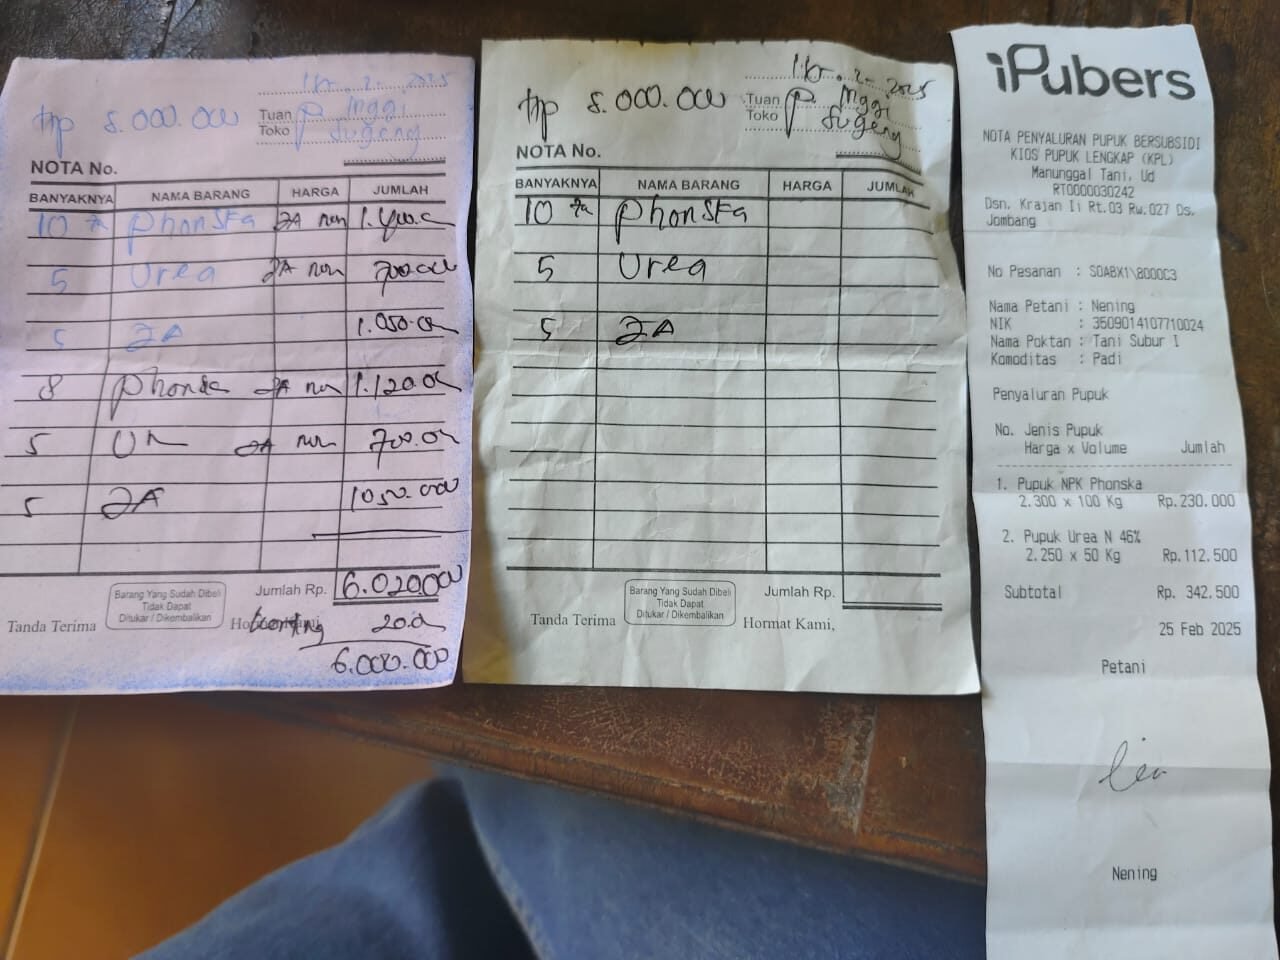 2025
5.000.000
Tuan P. Mggi
Toko Sugeng
NOTA No.
BANYAKNYA NAMA BARANG HARGA JUMLAH
10 Phonska 1.400.0
5 Urea 700.000
5 ZA 1.050.0
8 Phonska 1.120.0
5 700.0
5 ZA 1050.000
Jumlah Rp. 6.020.000
Barang Yang Sudah Dibeli
Tidak Dapat
Ditukar / Dikembalikan
Tanda Terima
20.0
6.000.000
2025
5.000.000
Tuan P. Mggi
Toko Sugeng
NOTA No.
BANYAKNYA NAMA BARANG HARGA JUMLAH
10 Phonska
5 Urea
5 ZA
Jumlah Rp.
Barang Yang Sudah Dibeli
Tidak Dapat
Ditukar / Dikembalikan
Tanda Terima Hormat Kami,
iPubers
NOTA PENYALURAN PUPUK BERSUBSIDI
KIOS PUPUK LENGKAP (KPL)
Manunggal Tani, Ud
RT0000030242
Dsn. Krajan Ii Rt.03 Rw.027 Ds.
Jombang
No Pesanan : SOABX1\8000C3
Nama Petani : Nening
NIK : 3509014107710024
Nama Poktan : Tani Subur I
Komoditas : Padi
Penyaluran Pupuk
No. Jenis Pupuk
Harga x Volume Jumlah
1. Pupuk NPK Phonska
2.300 x 100 Kg Rp.230.000
2. Pupuk Urea N 46%
2.250 x 50 Kg Rp.112.500
Subtotal Rp. 342.500
25 Feb 2025
Petani
Nening